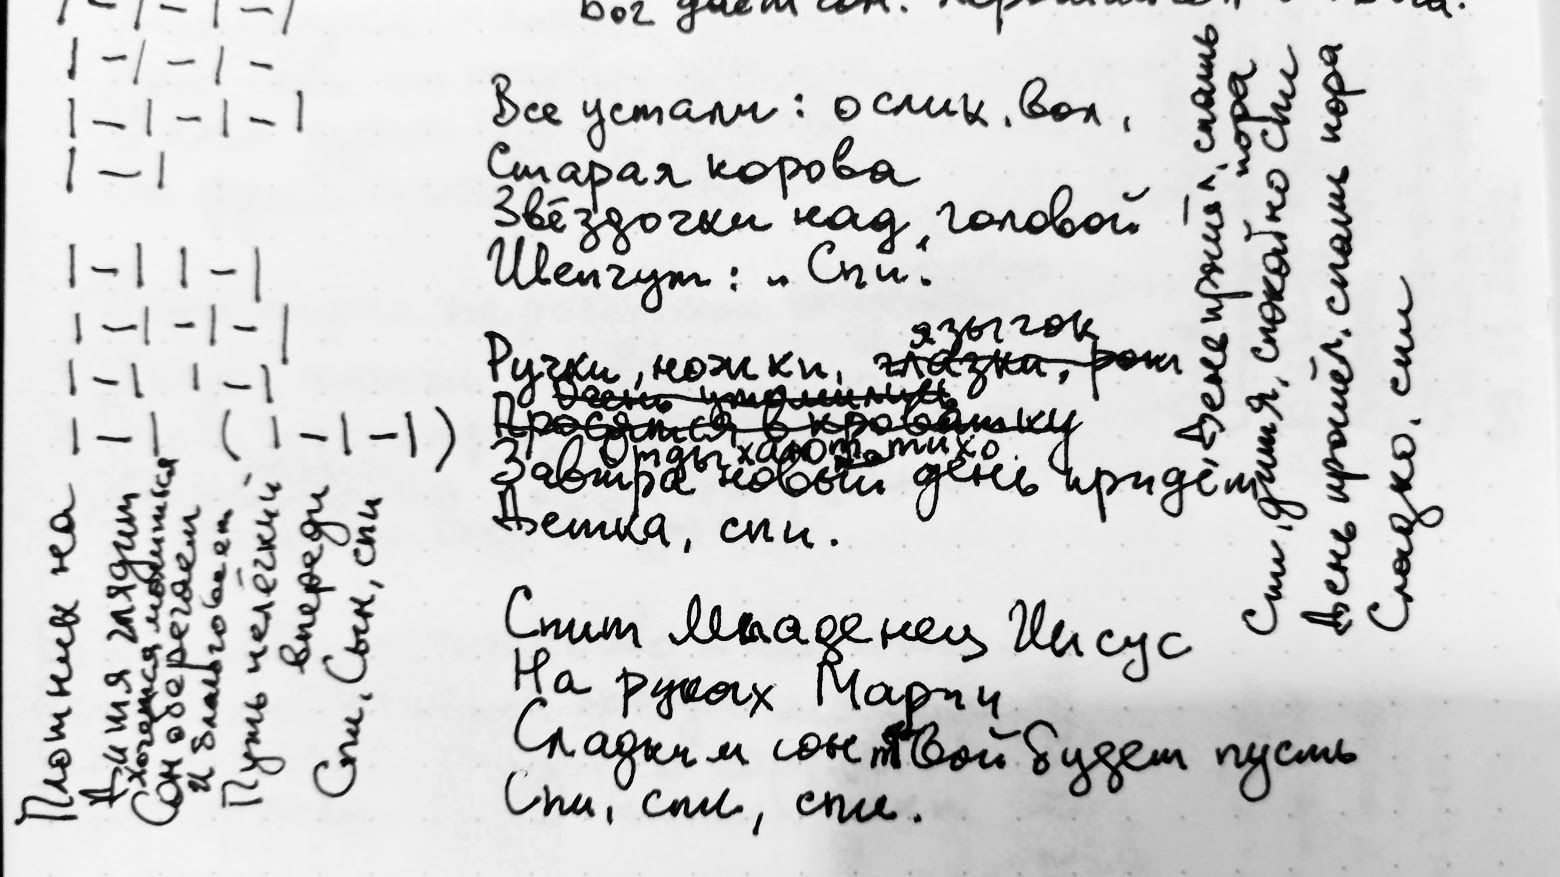 Бог даёт сон.
Все устали: ослик, вол,
Старая корова
Звёздочки над головой
Шепчут: „Спи".
язычок
Ручки, ножки, глазки, рот
День утомились
Просятся в кроватку
Отдыхают тихо
Завтра новый день придёт,
Детка, спи.
Спит Младенец Иисус
На руках Марии
Сладким сон твой будет пусть
Спи, спи, спи.
Плотник на
Дитя глядит
Хочется молиться
Сон оберегает
и благ
Путь нелёгкий
впереди
Спи, Сын, спи
День прошёл, спать
пора
Спи, дитя, спокойно спи
День прошёл, спать пора
Сладко, спи